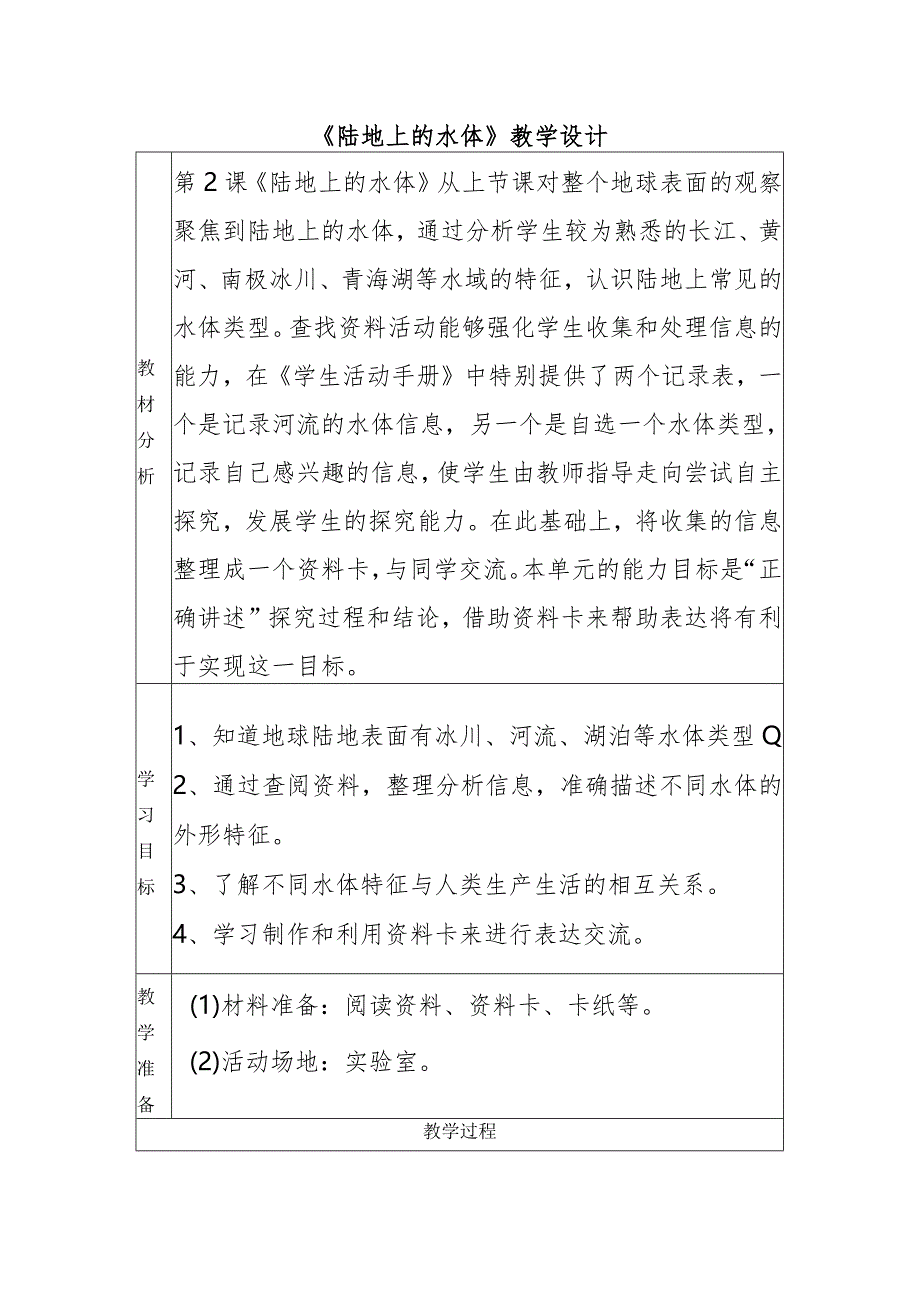 《陆地上的水体》教学设计
教材分析
第2课《陆地上的水体》从上节课对整个地球表面的观察
聚焦到陆地上的水体，通过分析学生较为熟悉的长江、黄
河、南极冰川、青海湖等水域的特征，认识陆地上常见的
水体类型。查找资料活动能够强化学生收集和处理信息的
能力，在《学生活动手册》中特别提供了两个记录表，一
个是记录河流的水体信息，另一个是自选一个水体类型，
记录自己感兴趣的信息，使学生由教师指导走向尝试自主
探究，发展学生的探究能力。在此基础上，将收集的信息
整理成一个资料卡，与同学交流。本单元的能力目标是“正
确讲述”探究过程和结论，借助资料卡来帮助表达将有利
于实现这一目标。
学习目标
1、知道地球陆地表面有冰川、河流、湖泊等水体类型Q
2、通过查阅资料，整理分析信息，准确描述不同水体的
外形特征。
3、了解不同水体特征与人类生产生活的相互关系。
4、学习制作和利用资料卡来进行表达交流。
教学准备
(1)材料准备：阅读资料、资料卡、卡纸等。
(2)活动场地：实验室。
教学过程